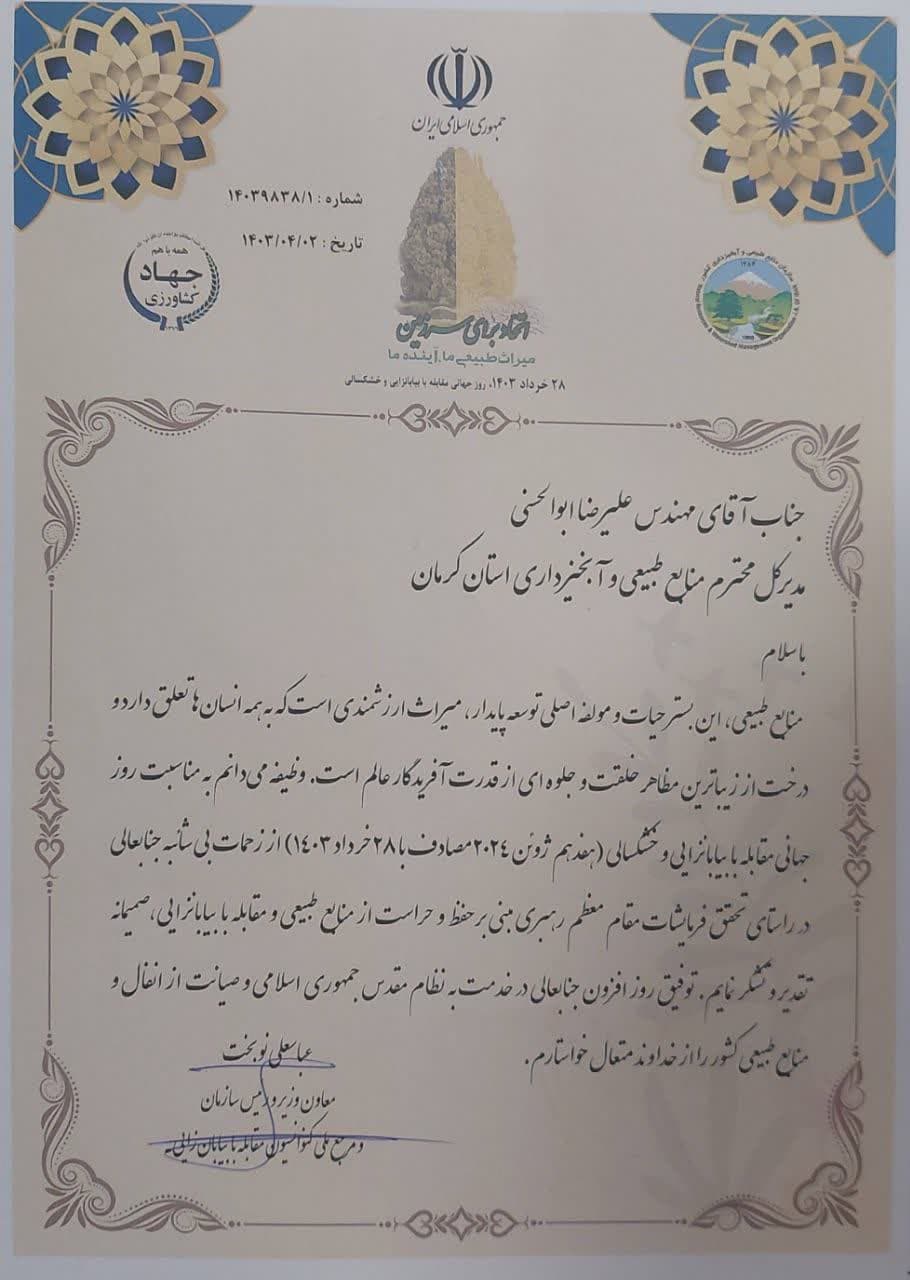 جمهوری اسلامی ایران
شماره : ۱۴۰۳۹۸۳۸/۱
تاریخ : ۱۴۰۳/۰۴/۰۲
همه با هم
جهاد
کشاورزی
سازمان منابع طبیعی و آبخیزداری کشور
اتحاد برای سرزمین
میراث طبیعی ما، آینده ما
۲۸ خرداد ۱۴۰۳، روز جهانی مقابله با بیابانزایی و خشکسالی
جناب آقای مهندس علیرضا ابوالحسنی
مدیرکل محترم منابع طبیعی و آبخیزداری استان کرمان
با سلام
منابع طبیعی، این بستر حیات و مولفه اصلی توسعه پایدار، میراث ارزشمندی است که به همه انسان ها تعلق دارد و
درخت از زیباترین مظاهر خلقت و جلوه ای از قدرت آفریدگار عالم است. وظیفه می دانم به مناسبت روز
جهانی مقابله با بیابانزایی و خشکسالی (هفدهم ژوئن ۲۰۲۴ مصادف با ۲۸ خرداد ۱۴۰۳) از زحمات بی شائبه جنابعالی
در راستای تحقق فرمایشات مقام معظم رهبری مبنی بر حفظ و حراست از منابع طبیعی و مقابله با بیابانزایی، صمیمانه
تقدیر و تشکر نمایم. توفیق روز افزون جنابعالی در خدمت به نظام مقدس جمهوری اسلامی و صیانت از انفال و
منابع طبیعی کشور را از خداوند متعال خواستارم.
عباسعلی نوبخت
معاون وزیر و رئیس سازمان
و مرجع ملی کنوانسیون مقابله با بیابان زایی